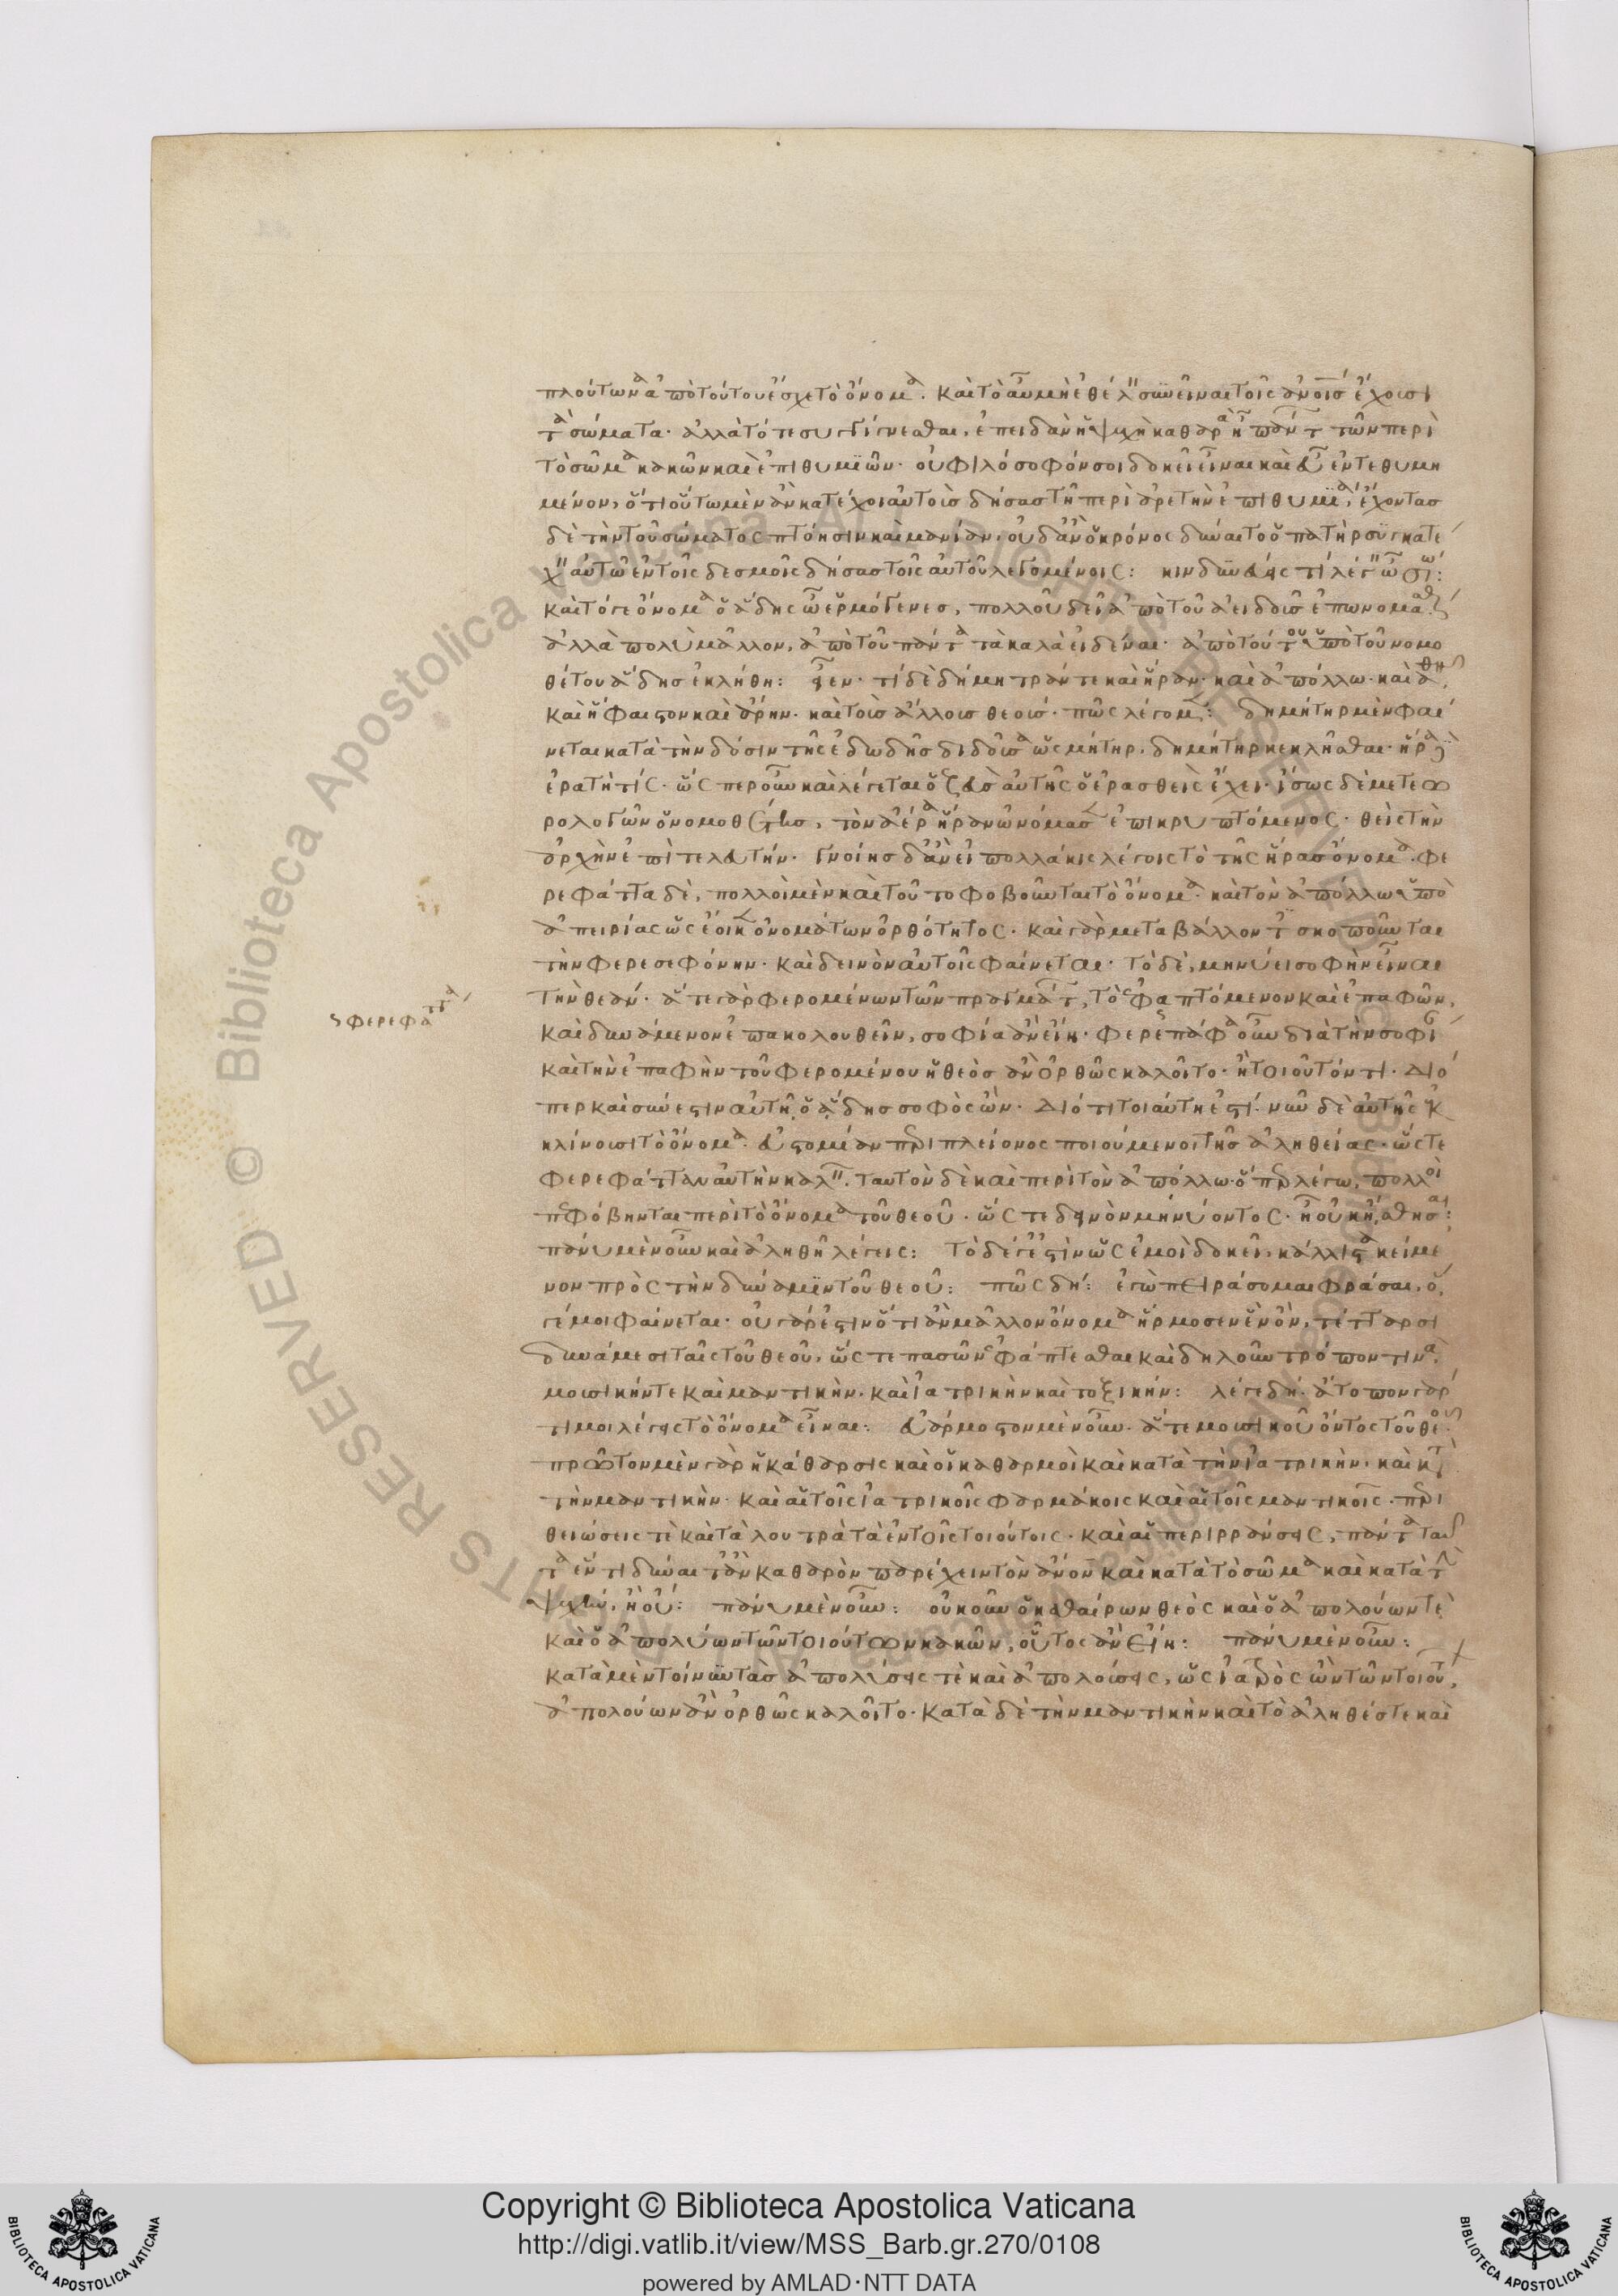 πλούτωνα ἀπὸ τούτου ἔσχε τὸ ὄνομα. καὶ τὸ αὖ μὴ ἐθέλειν συνεῖναι τοῖς ἀνοις ἔχουσι
τὰ σώματα. ἀλλὰ τότε συγγίγνεσθαι, ἐπειδὰν ἡ ψυχὴ καθαρὰ ἦ πάντων τῶν περὶ
τὸ σῶμα κακῶν καὶ ἐπιθυμιῶν. οὐ φιλόσοφόν σοι δοκεῖ εἶναι καὶ εὖ ἐντεθυμη
μένον, ὅτι οὕτω μὲν ἂν κατέχοι αὐτοὺς δήσας τῆ περὶ ἀρετὴν ἐπιθυμία, ἔχοντας
δὲ τὴν τοῦ σώματος πτόησιν καὶ μανίαν. οὐδ' ἂν ὁ κρόνος δύναιτο ὁ πατὴρ συγκατέ
χειν αὐτῶ ἐν τοῖς δεσμοῖς δήσας τοῖς αὐτοῦ λεγομένοις: κινδυνεύεις τὶ λέγειν ὦ σώ:
καὶ τό γε ὄνομα ὁ ἅδης ὦ ἑρμόγενες, πολλοῦ δεῖ ἀπὸ τοῦ ἀειδοῦς ἐπωνομάσθ
ἀλλὰ πολὺ μᾶλλον, ἀπὸ τοῦ πάντα τὰ καλὰ εἰδέναι. ἀπὸ τούτου ὑπὸ τοῦ νομο
θέτου ἅδης ἐκλήθη: εἶεν. τί δὲ δήμητράν τε καὶ ἥραν. καὶ ἀπόλλω. καὶ ἀθη
καὶ ἥφαιστον καὶ ἄρην. καὶ τοὺς ἄλλους θεούς. πῶς λέγομεν: δημήτηρ μὲν φαί
νεται κατὰ τὴν δόσιν τῆς ἐδωδῆς διδοῦσα ὡς μήτηρ. δημήτηρ κεκλῆσθαι. ἥρα δὲ
ἐρατή τις. ὥσπερ οὖν καὶ λέγεται ὁ ζεὺς αὐτῆς ὁ ἐρασθεὶς ἔχει. ἴσως δὲ μετεω
ρολογῶν ὁ νομοθέτης, τὸν ἀέρα ἥραν ὠνόμασεν ἐπικρυπτόμενος. θεὶς τὴν
ἀρχὴν ἐπὶ τελευτήν. γνοίης δ' ἂν εἰ πολλάκις λέγοις τὸ τῆς ἥρας ὄνομα. φε
ρεφάττα δὲ, πολλοὶ μὲν καὶ τοῦτο φοβοῦνται τὸ ὄνομα. καὶ τὸν ἀπόλλω ὑπὸ
ἀπειρίας ὡς ἔοικεν ὀνομάτων ὀρθότητος. καὶ γὰρ μεταβάλλοντες σκοποῦνται
τὴν φερεσεφόνην. καὶ δεινὸν αὐτοῖς φαίνεται. τὸ δὲ, μηνύει σοφὴν εἶναι
τὴν θεάν. ἅτε γὰρ φερομένων τῶν πραγμάτων, τὸ ἐφαπτόμενον καὶ ἐπαφῶν,
ς φερεφάττα
καὶ δυνάμενον ἐπακολουθεῖν, σοφία ἂν εἴη. φερεπάφα οὖν διὰ τὴν σοφί
καὶ τὴν ἐπαφὴν τοῦ φερομένου ἡ θεὸς ἂν ὀρθῶς καλοῖτο. ἢ τοιοῦτόν τι. διό
περ καὶ σύνεστιν αὐτῆ ὁ ἅδης σοφὸς ὤν. διότι τοιαύτη ἐστί. νῦν δὲ αὐτῆς ἐκ
κλίνουσι τὸ ὄνομα. εὐστομίαν περὶ πλείονος ποιούμενοι τῆς ἀληθείας. ὥστε
φερεφάτταν αὐτὴν καλεῖν. ταυτὸν δὲ καὶ περὶ τὸν ἀπόλλω. ὅπερ λέγω, πολλοὶ
πεφόβηνται περὶ τὸ ὄνομα τοῦ θεοῦ. ὥς τε δεινὸν μηνύοντος. ἢ οὐκ ἤσθησαι:
πάνυ μὲν οὖν καὶ ἀληθῆ λέγεις: τὸ δέ γ' ἔστιν ὡς ἐμοὶ δοκεῖ. κάλλιστα κείμε
νον πρὸς τὴν δύναμιν τοῦ θεοῦ: πῶς δή: ἐγὼ πειράσομαι φράσαι, ὅ,
γέ μοι φαίνεται. οὐ γὰρ ἔστιν ὅτι ἂν μᾶλλον ὄνομα ἥρμοσεν ἓν ὂν, τέτταρσι
δυνάμεσι ταῖς τοῦ θεοῦ, ὥστε πασῶν ἐφάπτεσθαι καὶ δηλοῦν τρόπον τινὰ,
μουσικήν τε καὶ μαντικὴν. καὶ ἰατρικὴν καὶ τοξικήν: λέγε δή. ἄτοπον γάρ
τι μοι λέγεις τὸ ὄνομα εἶναι: εὐάρμοστον μὲν οὖν. ἅτε μουσικοῦ ὄντος τοῦ θεοῦ.
πρῶτον μὲν γὰρ ἡ κάθαρσις καὶ οἱ καθαρμοὶ καὶ κατὰ τὴν ἰατρικὴν. καὶ κατὰ
τὴν μαντικὴν. καὶ αἱ τοῖς ἰατρικοῖς φαρμάκοις καὶ αἱ τοῖς μαντικοῖς. περι
θειώσεις τὲ καὶ τὰ λουτρὰ τὰ ἐν τοῖς τοιούτοις. καὶ αἱ περιρράνσεις, πάντα ταῦ
τα ἕν τι δύναιτ' ἂν καθαρὸν παρέχειν τὸν ἄνον καὶ κατὰ τὸ σῶμα καὶ κατὰ τὴν
ψυχήν. ἢ οὔ: πάνυ μὲν οὖν: οὐκοῦν ὁ καθαίρων θεὸς καὶ ὁ ἀπολούων τὲ
καὶ ὁ ἀπολύων τῶν τοιούτων κακῶν, οὗτος ἂν εἴη: πάνυ μὲν οὖν:
κατὰ μὲν τοίνυν τὰς ἀπολύσεις τὲ καὶ ἀπολούσεις, ὡς ἰατρὸς ὢν τῶν τοιούτ,
ἀπολούων ἂν ὀρθῶς καλοῖτο. κατὰ δὲ τὴν μαντικὴν καὶ τὸ ἀληθές τε καὶ
Copyright © Biblioteca Apostolica Vaticana
http://digi.vatlib.it/view/MSS_Barb.gr.270/0108
powered by AMLAD·NTT DATA
BIBLIOTECA APOSTOLICA VATICANA
BIBLIOTECA APOSTOLICA VATICANA